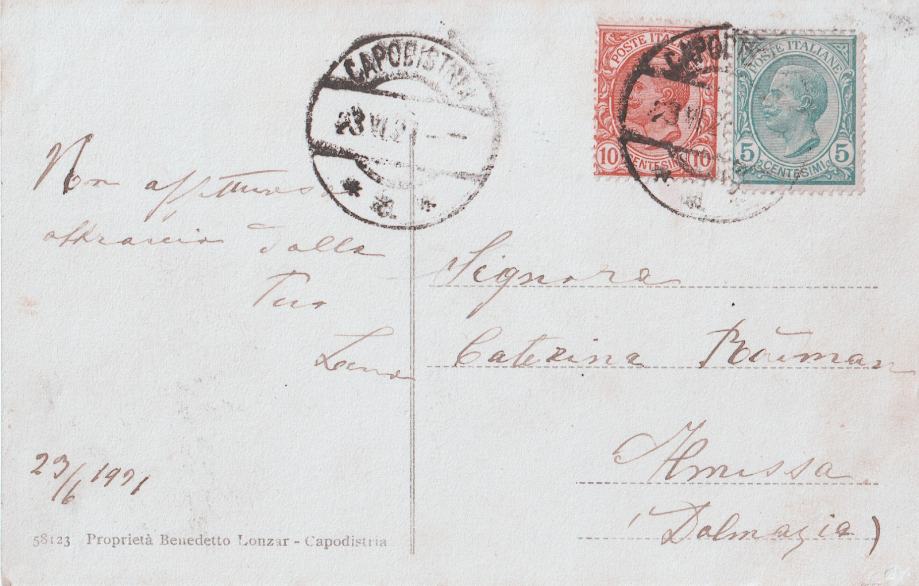 CAPODISTRIA
23 VI 21
POSTE ITALIANE
10 CENTESIMI 10
CAPODISTRIA
23 VI
POSTE ITALIANE
5 CENTESIMI 5
Un affettuoso
abbraccio dalla
Tua
23/6 1921
Signora
Caterina
Almissa
(Dalmazia)
58123 Proprietà Benedetto Lonzar - Capodistria